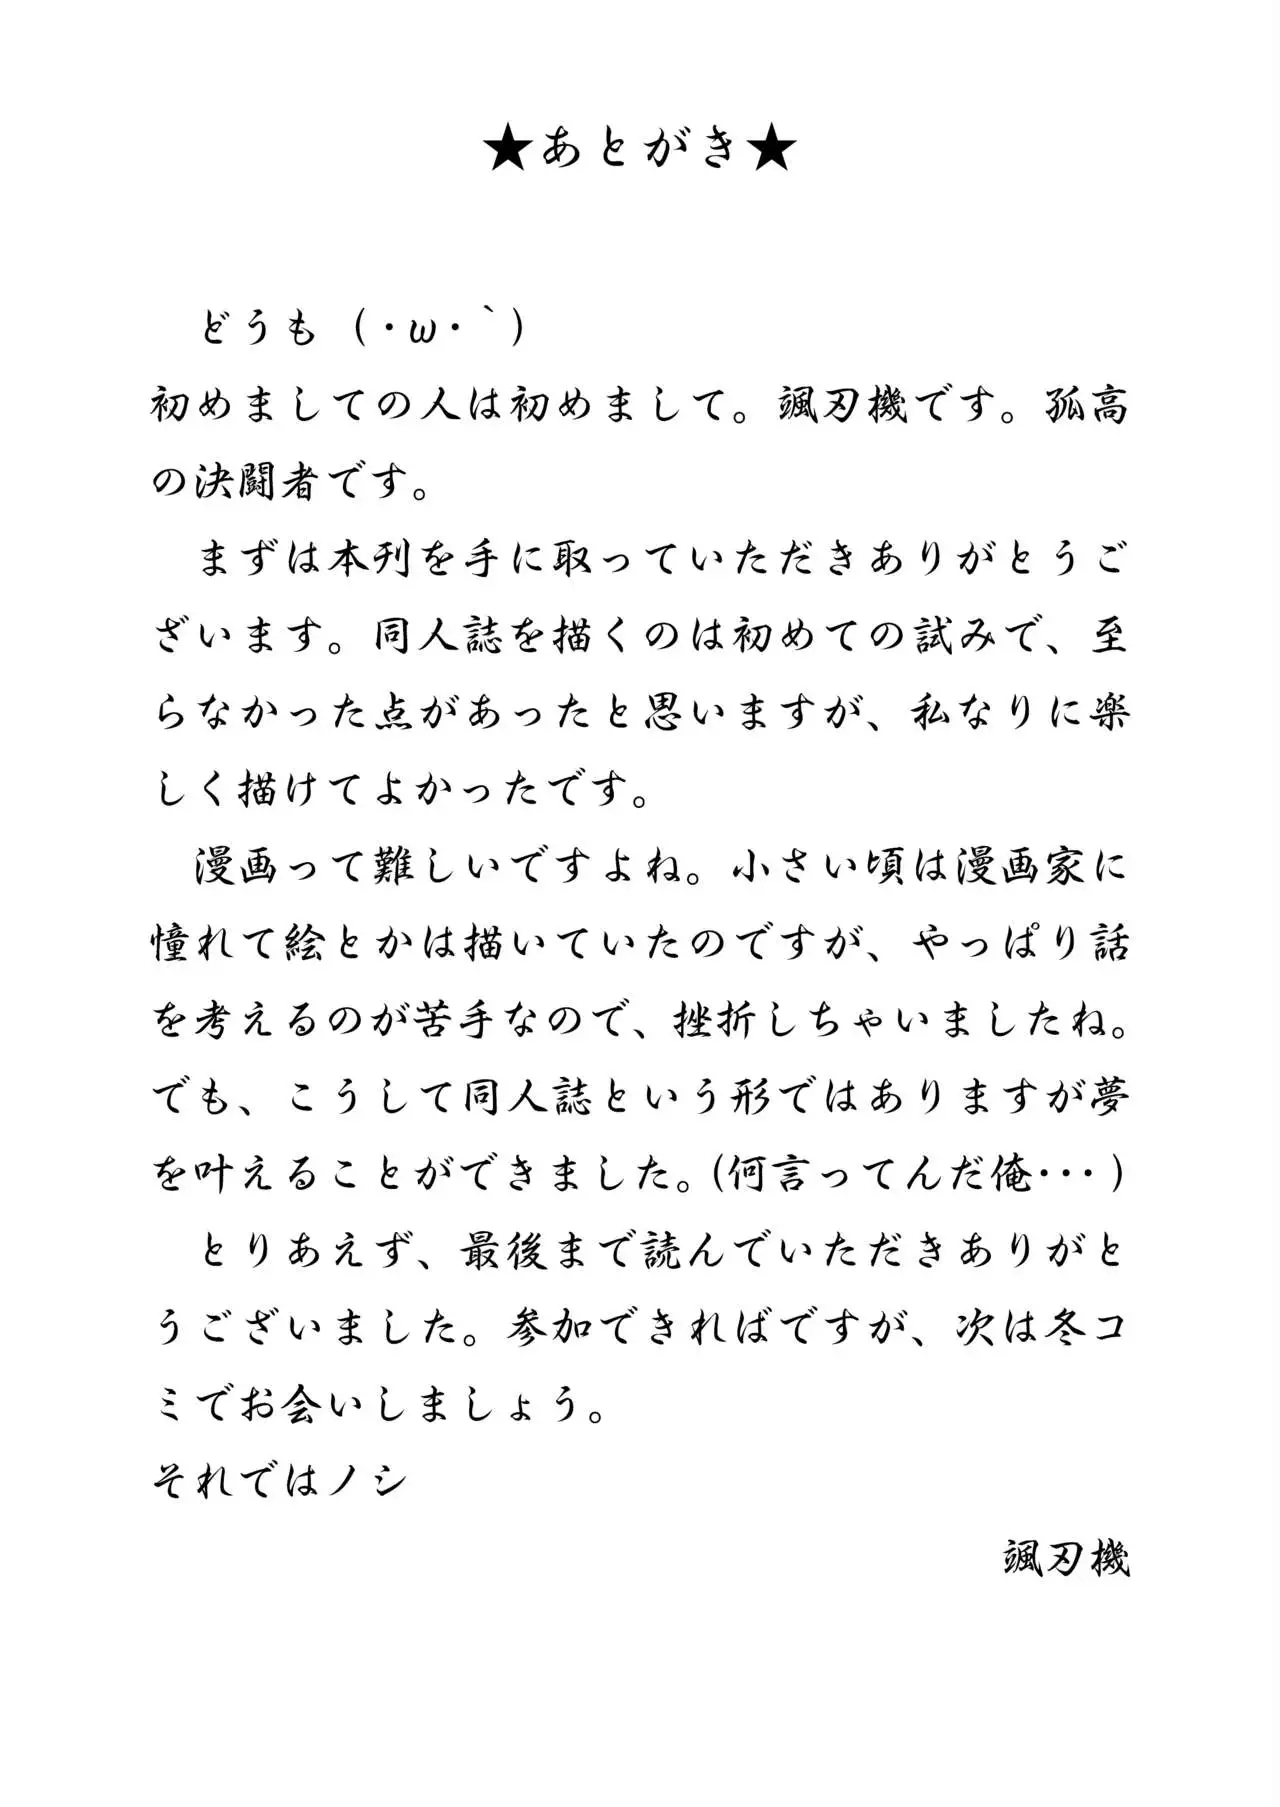 ★あとがき★
どうも（・ω・｀）
初めましての人は初めまして。颯刃機です。孤高
の決闘者です。
まずは本刊を手に取っていただきありがとうご
ざいます。同人誌を描くのは初めての試みで、至
らなかった点があったと思いますが、私なりに楽
しく描けてよかったです。
漫画って難しいですよね。小さい頃は漫画家に
憧れて絵とかは描いていたのですが、やっぱり話
を考えるのが苦手なので、挫折しちゃいましたね。
でも、こうして同人誌という形ではありますが夢
を叶えることができました。（何言ってんだ俺・・・）
とりあえず、最後まで読んでいただきありがと
うございました。参加できればですが、次は冬コ
ミでお会いしましょう。
それではノシ
颯刃機